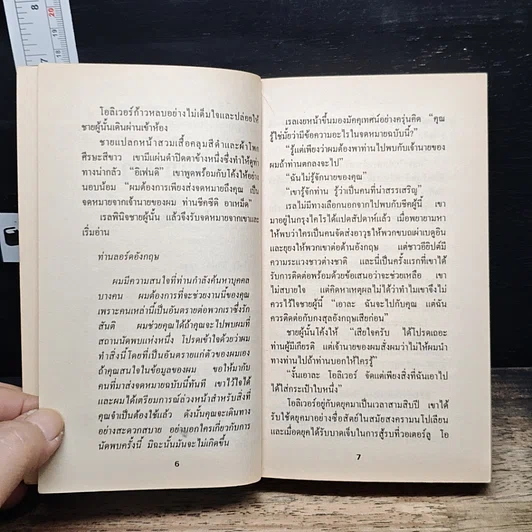 โอลิเวอร์ก้าวหลบอย่างไม่เต็มใจและปล่อยให้
ชายผู้นั้นเดินผ่านเข้าห้อง
ชายแปลกหน้าสวมเสื้อคลุมสีดำและผ้าโพก
ศีรษะสีขาว เขามีแผ่นดำปิดตาข้างหนึ่งซึ่งทำให้ดูท่า
ทางน่ากลัว "ยิเฟนดิ" เขาพูดพร้อมกับโค้งให้อย่าง
นอบน้อม "ผมต้องการเพียงส่งจดหมายถึงคุณ เป็น
จดหมายจากเจ้านายของผม ท่านชีคซีดี อาเหม็ด"
เรลพินิจชายผู้นั้น แล้วจึงรับจดหมายจากเขาและ
เริ่มอ่าน
ท่านลอร์ดอังกฤษ
ผมมีความสนใจที่ท่านกำลังค้นหาบุคคล
บางคน ผมต้องการที่จะช่วยงานนี้ของคุณ
เพราะคนเหล่านี้เป็นอันตรายต่อพวกเราซึ่งรัก
สันติ ผมช่วยคุณได้ถ้าคุณจะไปพบผมที่
สถานนัดพบแห่งหนึ่ง โปรดเข้าใจด้วยว่าผม
ทำสิ่งนี้โดยที่เป็นอันตรายแก่ตัวของผมเอง
ถ้าคุณสนใจในข้อมูลของผม ขอให้มากับ
คนที่มาส่งจดหมายฉบับนี้ทันที เขาไว้ใจได้
และผมได้เตรียมการล่วงหน้าสำหรับสิ่งที่
คุณจำเป็นต้องใช้แล้ว ดังนั้นคุณจะเดินทาง
อย่างสะดวกสบาย อย่าบอกใครเกี่ยวกับการ
นัดพบครั้งนี้ มิฉะนั้นมันจะไม่เกิดขึ้น
6
เรลเงยหน้าขึ้นมองมัคคุเทศน์อย่างครุ่นคิด "คุณ
รู้ใช่มั้ยว่ามีข้อความอะไรในจดหมายฉบับนี้?"
"รู้แต่เพียงว่าผมต้องพาท่านไปพบกับเจ้านายของ
ผมถ้าท่านตกลงจะไป"
"ฉันไม่รู้จักนายของคุณ"
"เขารู้จักท่าน รู้ว่าเป็นคนที่น่าสรรเสริญ"
เรลไม่มีทางเลือกนอกจากไปพบกับชีคผู้นี้ เขา
มาอยู่ในกรุงไคโรได้แปดสัปดาห์แล้ว เมื่อพยายามหา
ให้พบว่าใครเป็นคนส่งอาวุธให้พวกขบถเผ่าเบดูอิน
และยุยงให้พวกเขาต่อต้านอังกฤษ แต่ชาวอียิปต์มี
ความระแวงชาวต่างชาติ และนี่เป็นครั้งแรกที่เขาได้
รับการติดต่อพร้อมด้วยข้อเสนอว่าจะช่วยเหลือ เขา
ไม่สบายใจ แต่คิดหาเหตุผลไม่ได้ว่าทำไมเขาจึงไม่
ควรไว้ใจชายผู้นี้ "เอาละ ฉันจะไปกับคุณ แต่ฉัน
ควรติดต่อกับกงสุลอังกฤษเสียก่อน"
ชายผู้นั้นโค้งให้ "เสียใจครับ ได้โปรดเถอะ
ท่านผู้มีเกียรติ แต่เจ้านายของผมสั่งผมว่าไม่ให้ผมนำ
ทางท่านไปถ้าท่านบอกให้ใครรู้"
"งั้นเอาละ โอลิเวอร์ จัดแต่เพียงสิ่งที่ฉันเอาไป
ได้ใส่กระเป๋าใบหนึ่ง"
โอลิเวอร์อยู่กับดยุคมาเป็นเวลาสามสิบปี เขาได้
รับใช้ดยุคมาอย่างซื่อสัตย์ในสมัยสงครามนโปเลียน
และเมื่อดยุคได้รับบาดเจ็บในการสู้รบที่วอเตอร์ลู โอ
7
8